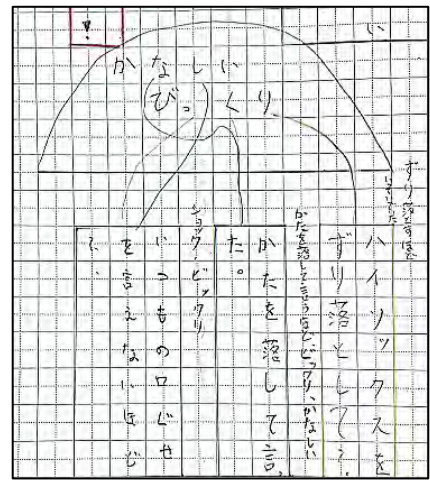 !
い
かなしい
びっくり
ずり落とすほど
ハイソックスを
ずり落として、
かたを落して言うほどビックリ、かなしい
かたを落して言っ
た。
ショック・ビックリ
いつもの口ぐせ
を言えないほど